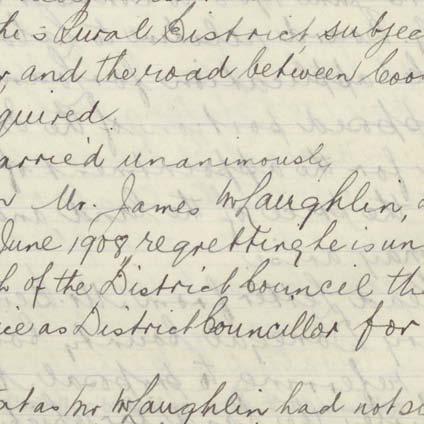 he Rural District, subjec
and the road between Coo
quired.
arried unanimously
Mr. James McLaughlin,
June 1908, regretting he is un
h of the District Council th
ice as District Councillor for
at as Mr McLaughlin had not si